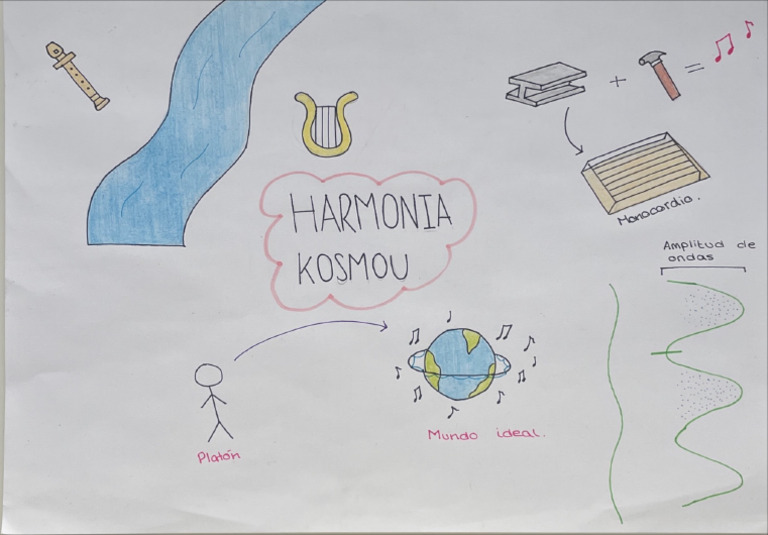 HARMONIA
KOSMOU
Monocordio.
Amplitud de
ondas
Platón
Mundo ideal.